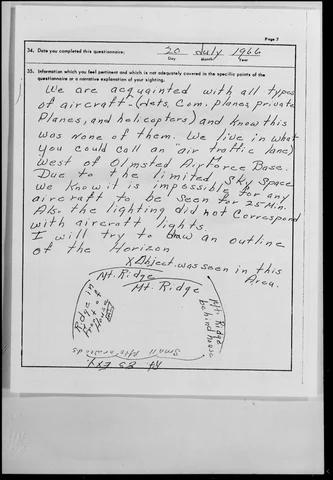 Page 7
34. Date you completed this questionnaire: 20 July 1966
Day Month Year
35. Information which you feel pertinent and which is not adequately covered in the specific points of the
questionnaire or a narrative explanation of your sighting.
We are acquainted with all types
of aircraft - (Jets, Com. planes, private
Planes, and helicopters) and know this
was none of them. We live in what
you could call an "air traffic lane"
West of Olmsted Air Force Base.
Due to the limited Sky Space
we know it is impossible for any
aircraft to be seen for 25 Min.
Also the lighting did not correspond
with aircraft lights.
I will try to draw an outline
of the Horizon
X Object was seen in this
Area.
Mt. Ridge
Mt. Ridge
Ridge in
Front of
House
Mt Ridge
behind house
Small Mts
Rt. 83 Exy.